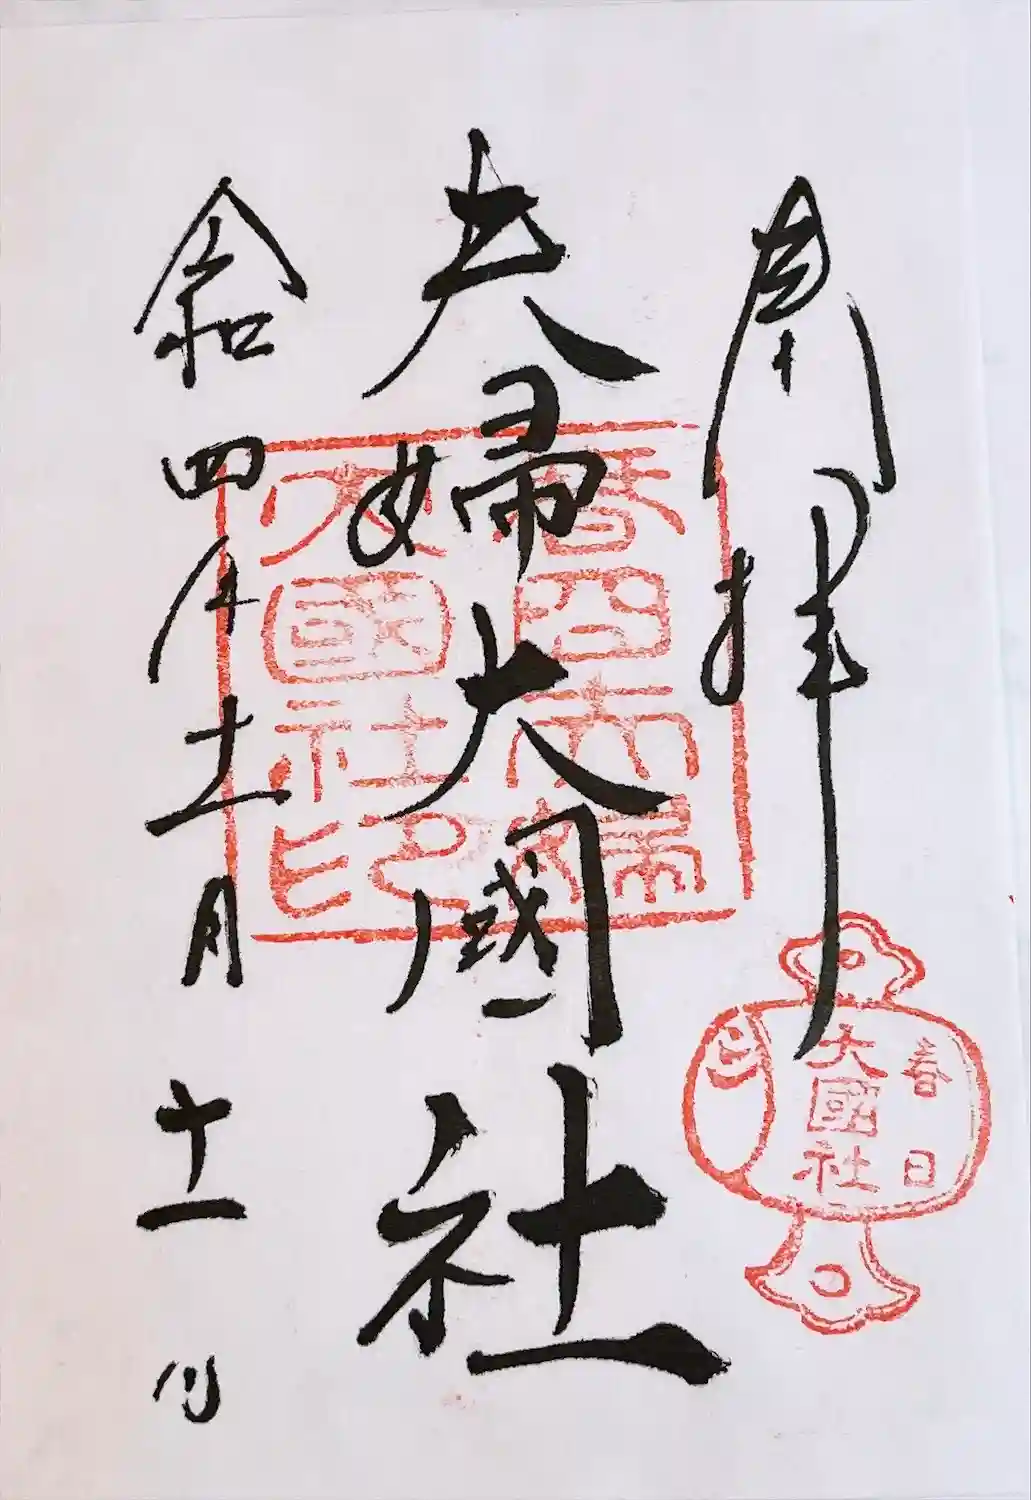 奉拝
夫婦大國社
令和四年十一月十一日
春日
大國社
春日夫婦
大國社印